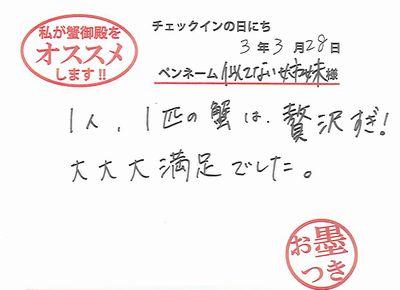 私が蟹御殿を
オススメ
します!!
チェックインの日にち
3年3月28日
ペンネーム 似てない姉妹様
1人、1匹の蟹は、贅沢すぎ!
大大大満足でした。
お墨
つき